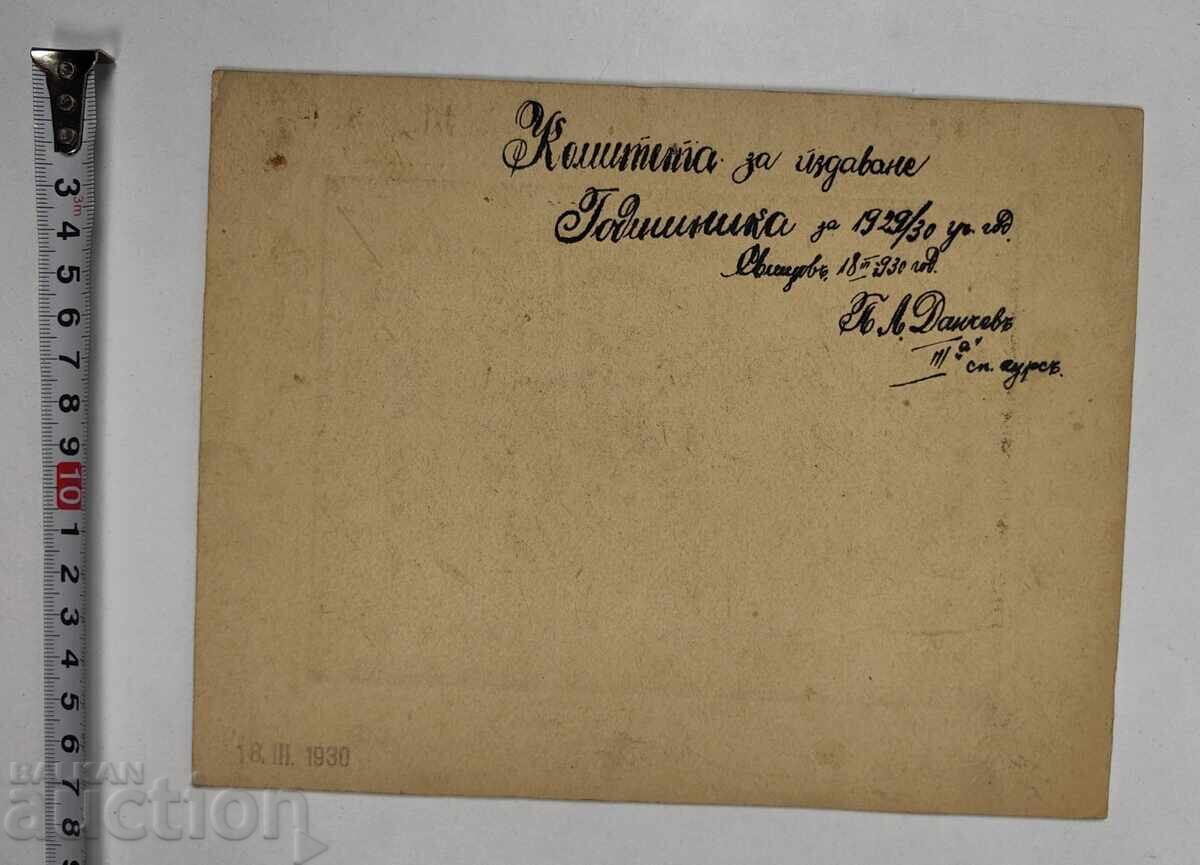 Комитета за издаване
Годишника за 1929/30 уч. год.
Свищовъ, 18 III 930 год.
П. Л. Данчевъ
III "а" сп. курсъ.
18. III. 1930
BALKAN
auction
3m
3
4
5
6
7
8
9
10
1
2
3
4
5
6
7
8